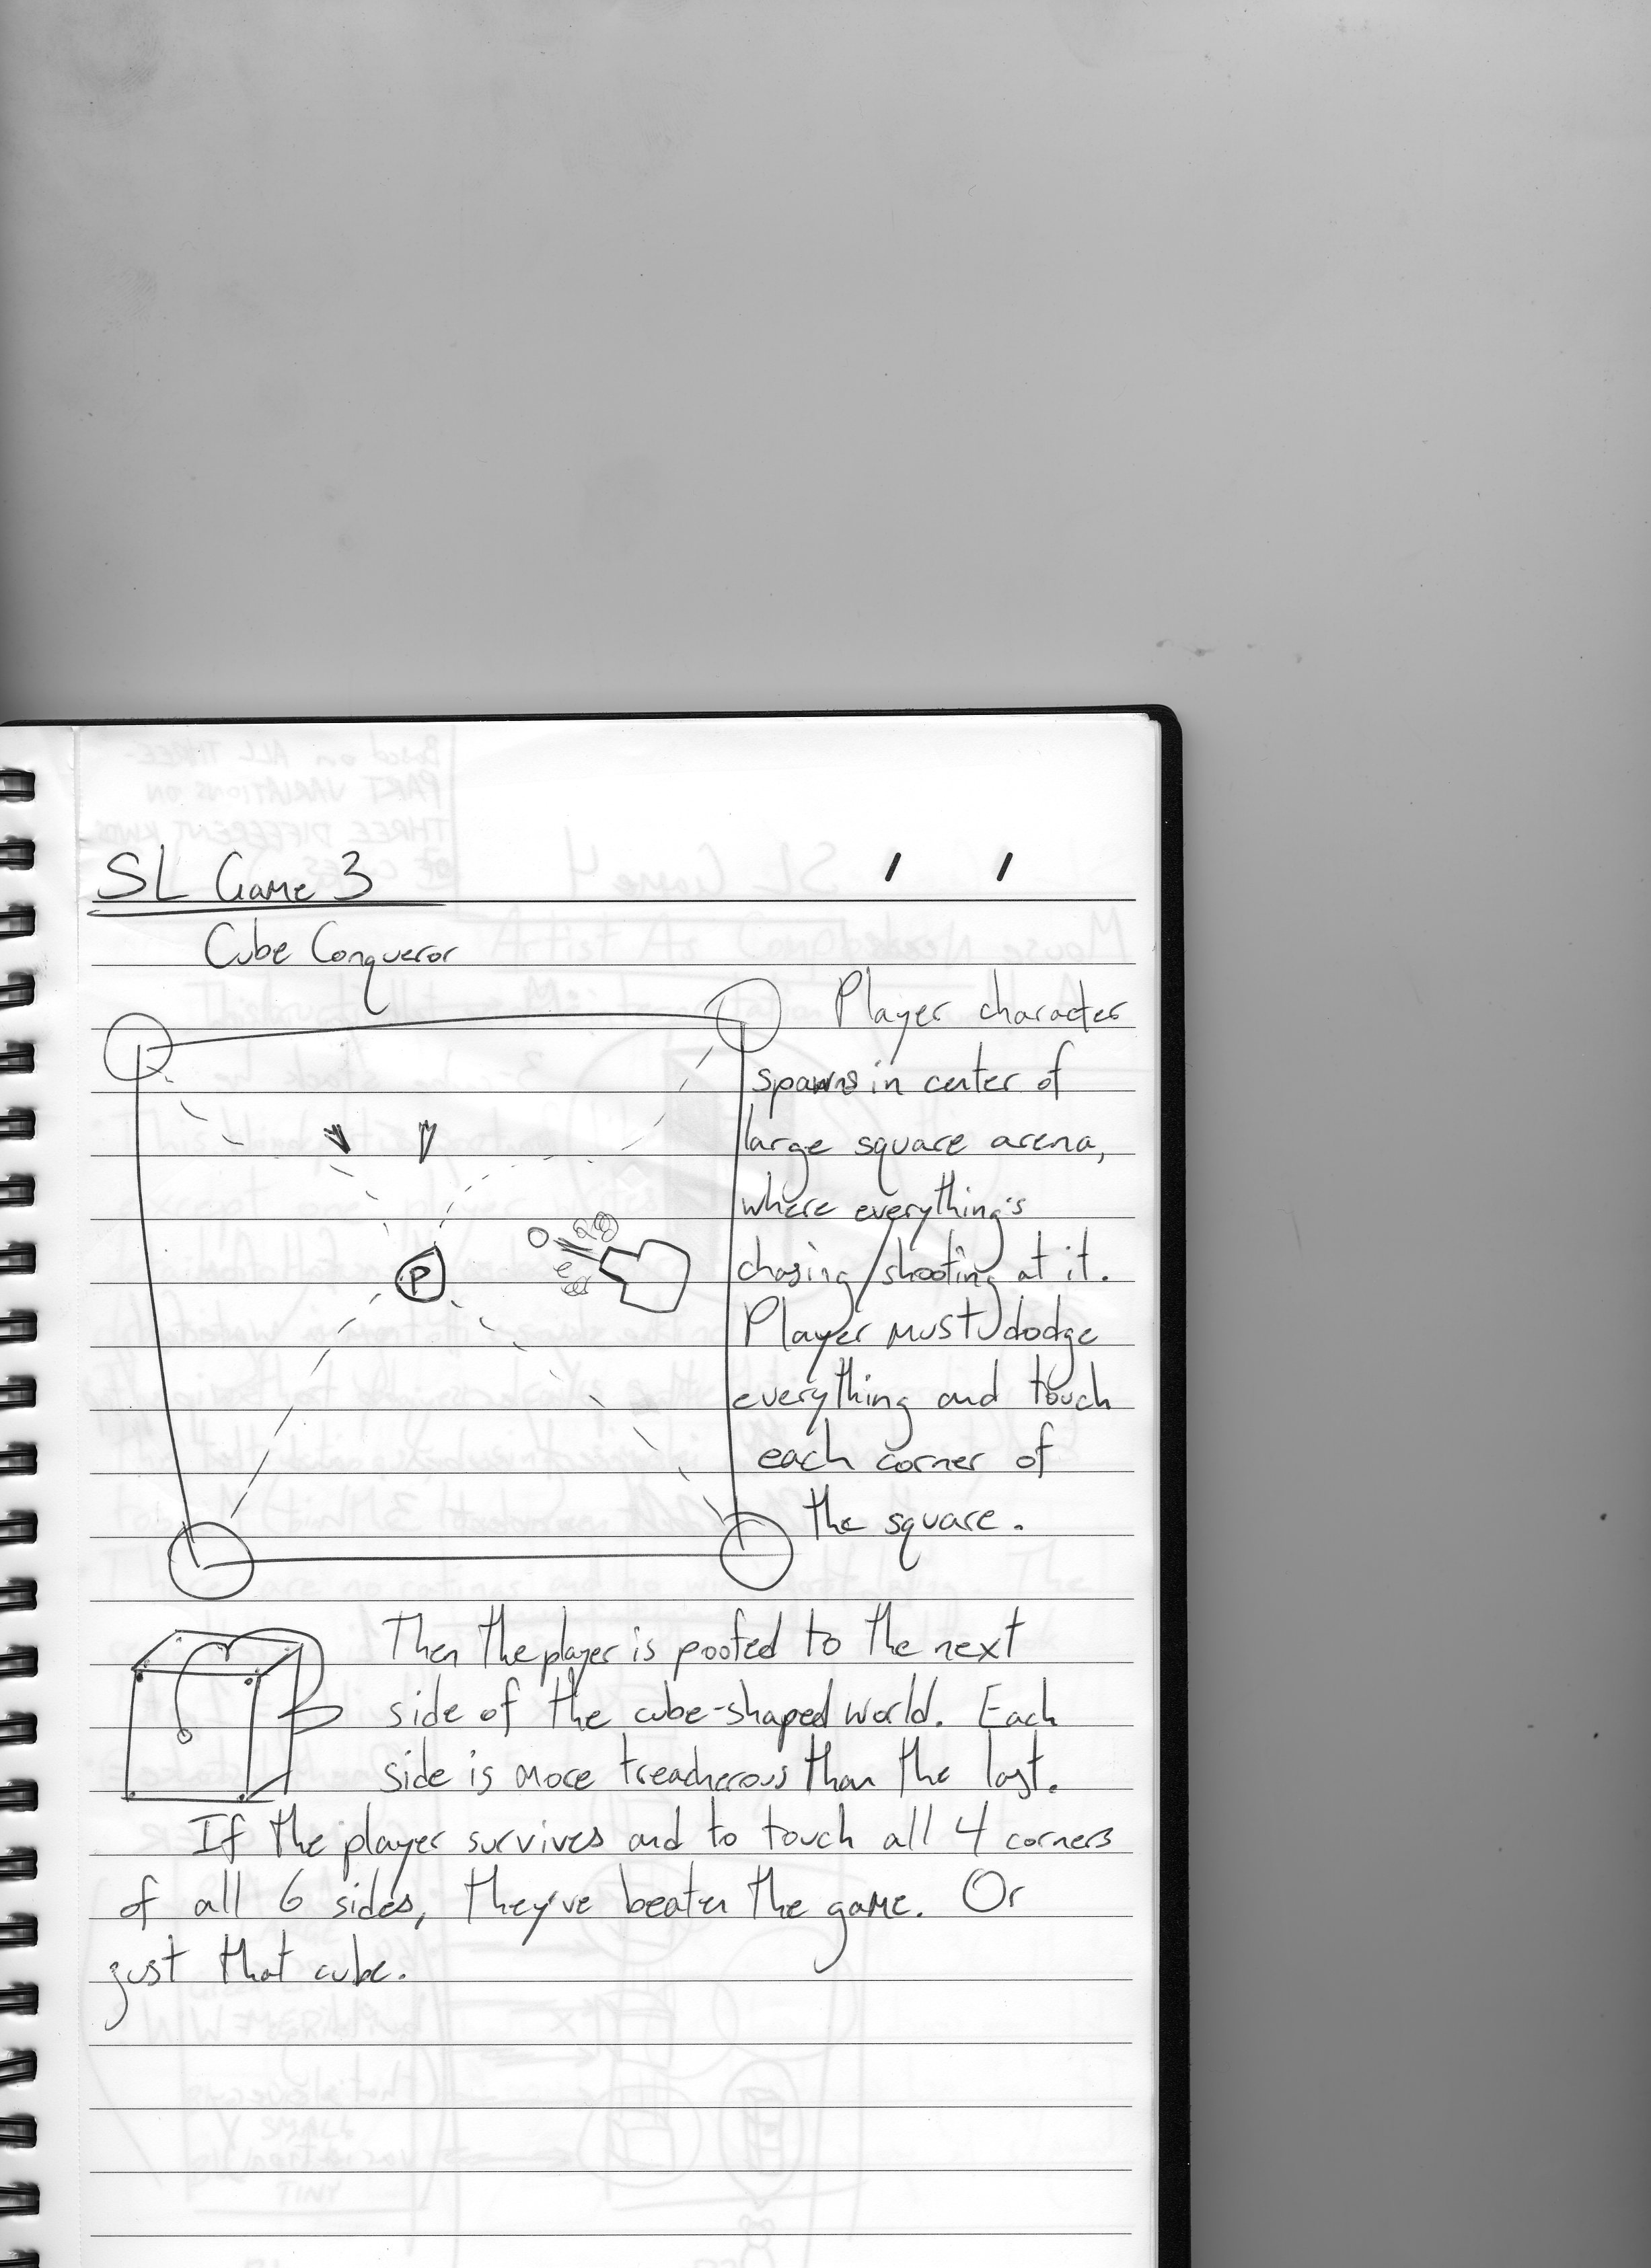 SL Game 3
Cube Conqueror
Player character
spawns in center of
large square arena,
where everything's
chasing/shooting at it.
Player must dodge
everything and touch
each corner of
the square.
P
Then the player is poofed to the next
side of the cube-shaped world. Each
side is more treacherous than the last.
If the player survives and to touch all 4 corners
of all 6 sides, they've beaten the game. Or
just that cube.